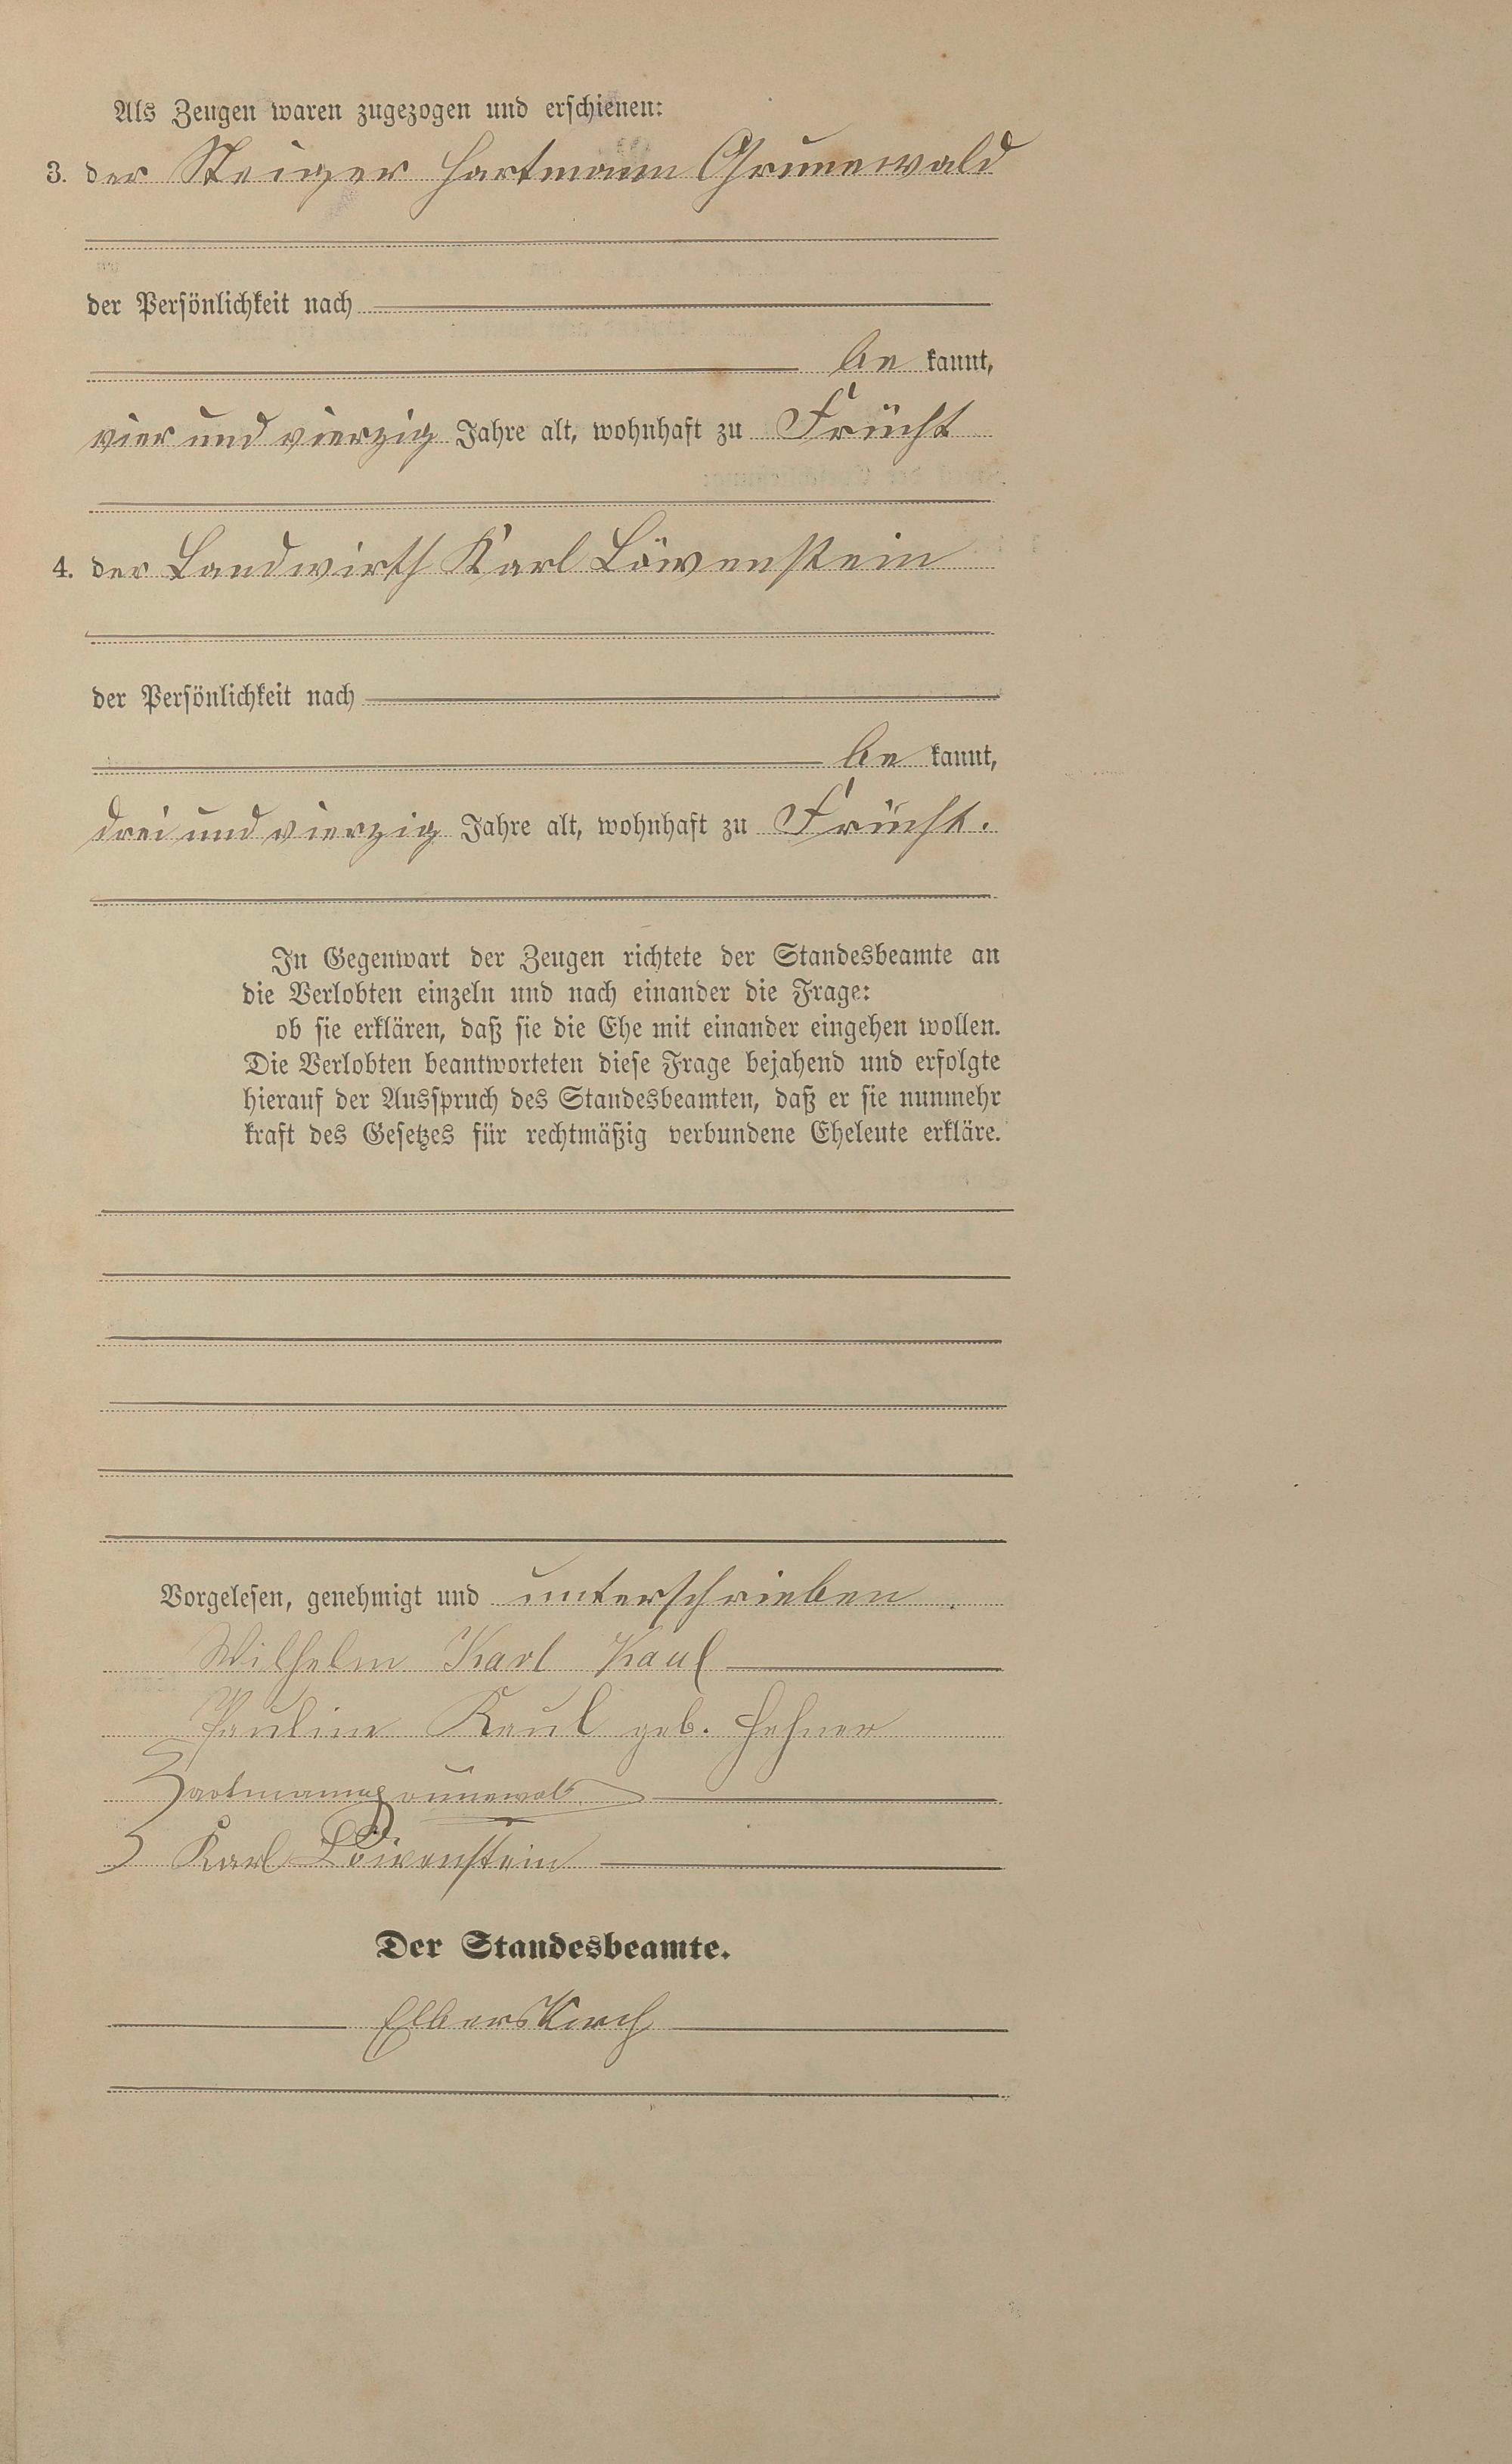 Als Zeugen waren zugezogen und erschienen:
3. der Steiger Hartmann Grunewald
der Persönlichkeit nach
be kannt,
vier und vierzig Jahre alt, wohnhaft zu Frücht
4. der Landwirth Karl Löwenstein
der Persönlichkeit nach
be kannt,
drei und vierzig Jahre alt, wohnhaft zu Frücht.
In Gegenwart der Zeugen richtete der Standesbeamte an
die Verlobten einzeln und nach einander die Frage:
ob sie erklären, daß sie die Ehe mit einander eingehen wollen.
Die Verlobten beantworteten diese Frage bejahend und erfolgte
hierauf der Ausspruch des Standesbeamten, daß er sie nunmehr
kraft des Gesetzes für rechtmäßig verbundene Eheleute erkläre.
Vorgelesen, genehmigt und unterschrieben.
Wilhelm Karl Kaul
Pauline Kaul geb. Hehner
Hartmann Grunewald
Karl Löwenstein
Der Standesbeamte.
Elberskirch